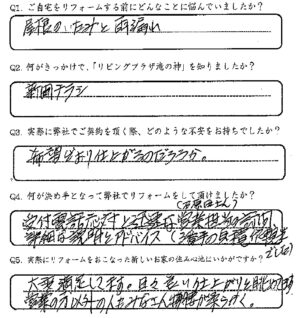 Q1. ご自宅をリフォームする前にどんなことに悩んでいましたか？
屋根のいたみと雨漏れ
Q2. 何がきっかけで、「リビングプラザ滝の神」を知りましたか？
新聞チラシ
Q3. 実際に弊社でご契約を頂く際、どのような不安をお持ちでしたか？
希望どおり仕上がるのだろうか。
Q4. 何が決め手となって弊社でリフォームをして頂けましたか？
受付電話応対と迅速な営業担当の訪問
詳細な説明とアドバイス
Q5. 実際にリフォームをおこなった新しいお家の住み心地にいかがですか？
大変満足してます。日々 良い仕上がりを眺めてます
営業の方以外の人もみなさん